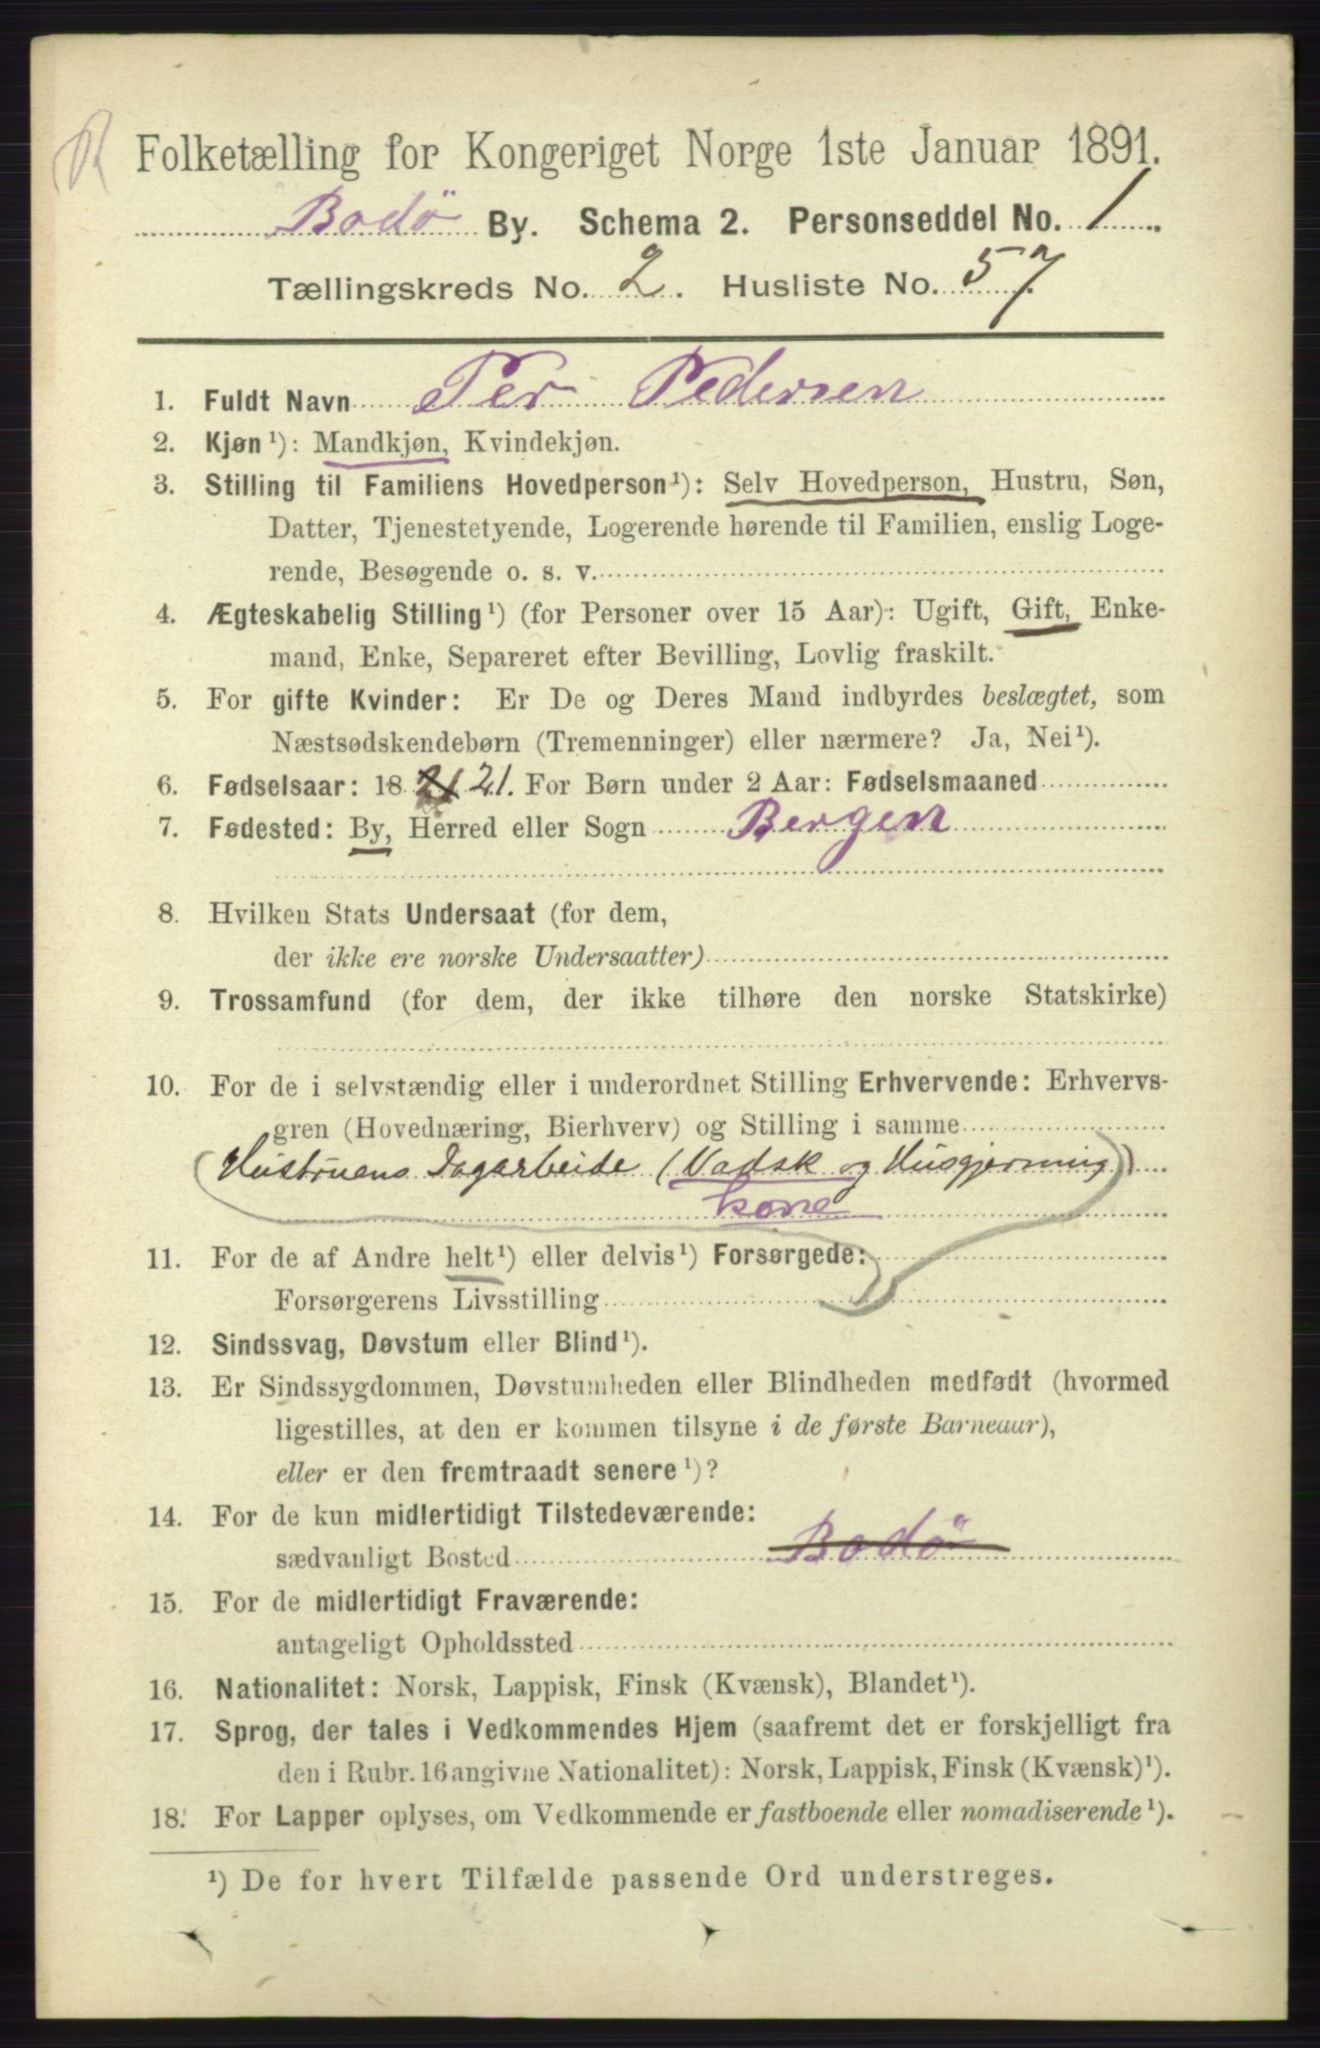 Folketælling for Kongeriget Norge 1ste Januar 1891.
Bodö By. Schema 2. Personseddel No. 1
Tællingskreds No. 2. Husliste No. 57
1. Fuldt Navn Per Pedersen
2. Kjøn¹): Mandkjøn, Kvindekjøn.
3. Stilling til Familiens Hovedperson¹): Selv Hovedperson, Hustru, Søn,
Datter, Tjenestetyende, Logerende hørende til Familien, enslig Loge-
rende, Besøgende o. s. v.
4. Ægteskabelig Stilling¹) (for Personer over 15 Aar): Ugift, Gift, Enke-
mand, Enke, Separeret efter Bevilling, Lovlig fraskilt.
5. For gifte Kvinder: Er De og Deres Mand indbyrdes beslægtet, som
Næstsødskendebørn (Tremenninger) eller nærmere? Ja, Nei¹).
6. Fødselsaar: 18 21 21. For Børn under 2 Aar: Fødselsmaaned
7. Fødested: By, Herred eller Sogn Bergen
8. Hvilken Stats Undersaat (for dem,
der ikke ere norske Undersaatter)
9. Trossamfund (for dem, der ikke tilhøre den norske Statskirke)
10. For de i selvstændig eller i underordnet Stilling Erhvervende: Erhvervs-
gren (Hovednæring, Bierhverv) og Stilling i samme
Hustruens Dagarbeide (Vadsk og Husgjerning)
kone
11. For de af Andre helt¹) eller delvis¹) Forsørgede:
Forsørgerens Livsstilling
12. Sindssvag, Døvstum eller Blind¹).
13. Er Sindssygdommen, Døvstumheden eller Blindheden medfødt (hvormed
ligestilles, at den er kommen tilsyne i de første Barneaar),
eller er den fremtraadt senere¹)?
14. For de kun midlertidigt Tilstedeværende:
sædvanligt Bosted Bodö
15. For de midlertidigt Fraværende:
antageligt Opholdssted
16. Nationalitet: Norsk, Lappisk, Finsk (Kvænsk), Blandet¹).
17. Sprog, der tales i Vedkommendes Hjem (saafremt det er forskjelligt fra
den i Rubr. 16 angivne Nationalitet): Norsk, Lappisk, Finsk (Kvænsk)¹).
18. For Lapper oplyses, om Vedkommende er fastboende eller nomadiserende¹).
¹) De for hvert Tilfælde passende Ord understreges.